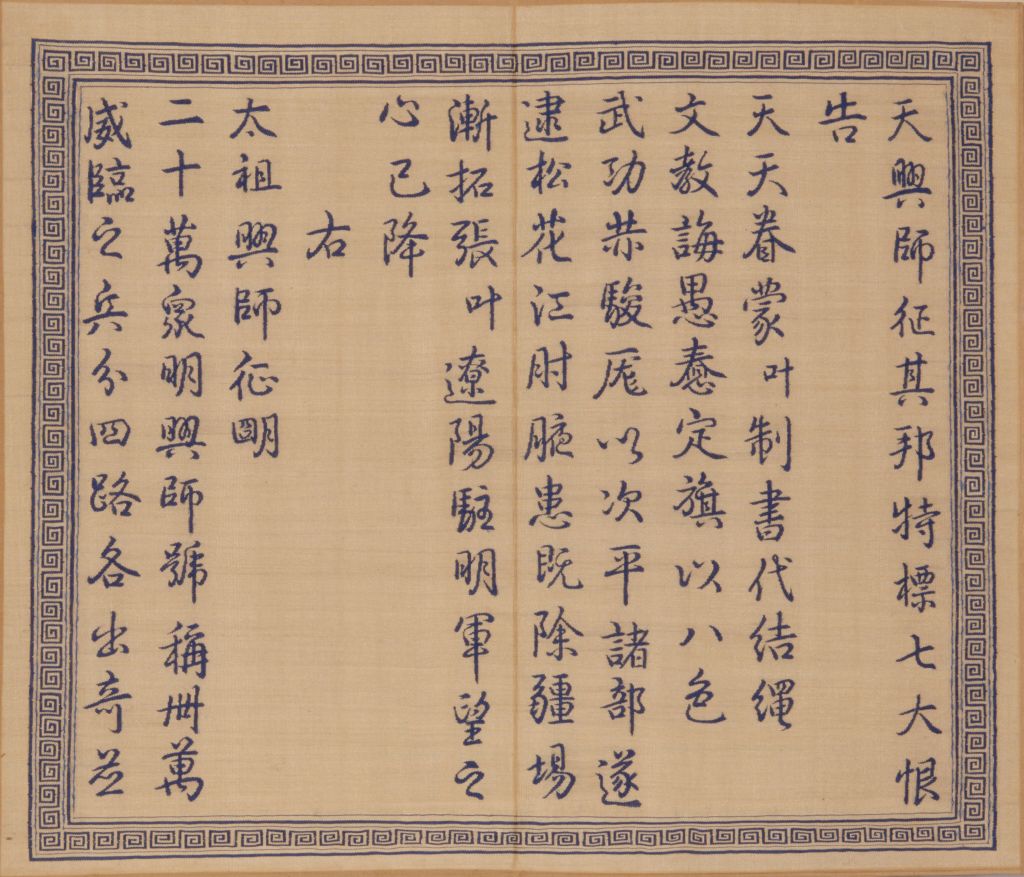 天興師征其邦特標七大恨
告
天天眷蒙叶制書代結繩
文教誨愚惷定旗以八色
武功恭駿厖以次平諸部遂
逮松花江肘腋患既除疆場
漸拓張叶遼陽駐明軍望之
心已降
右
太祖興師征明
二十萬衆明興師號稱卌萬
威臨之兵分四路各出奇並